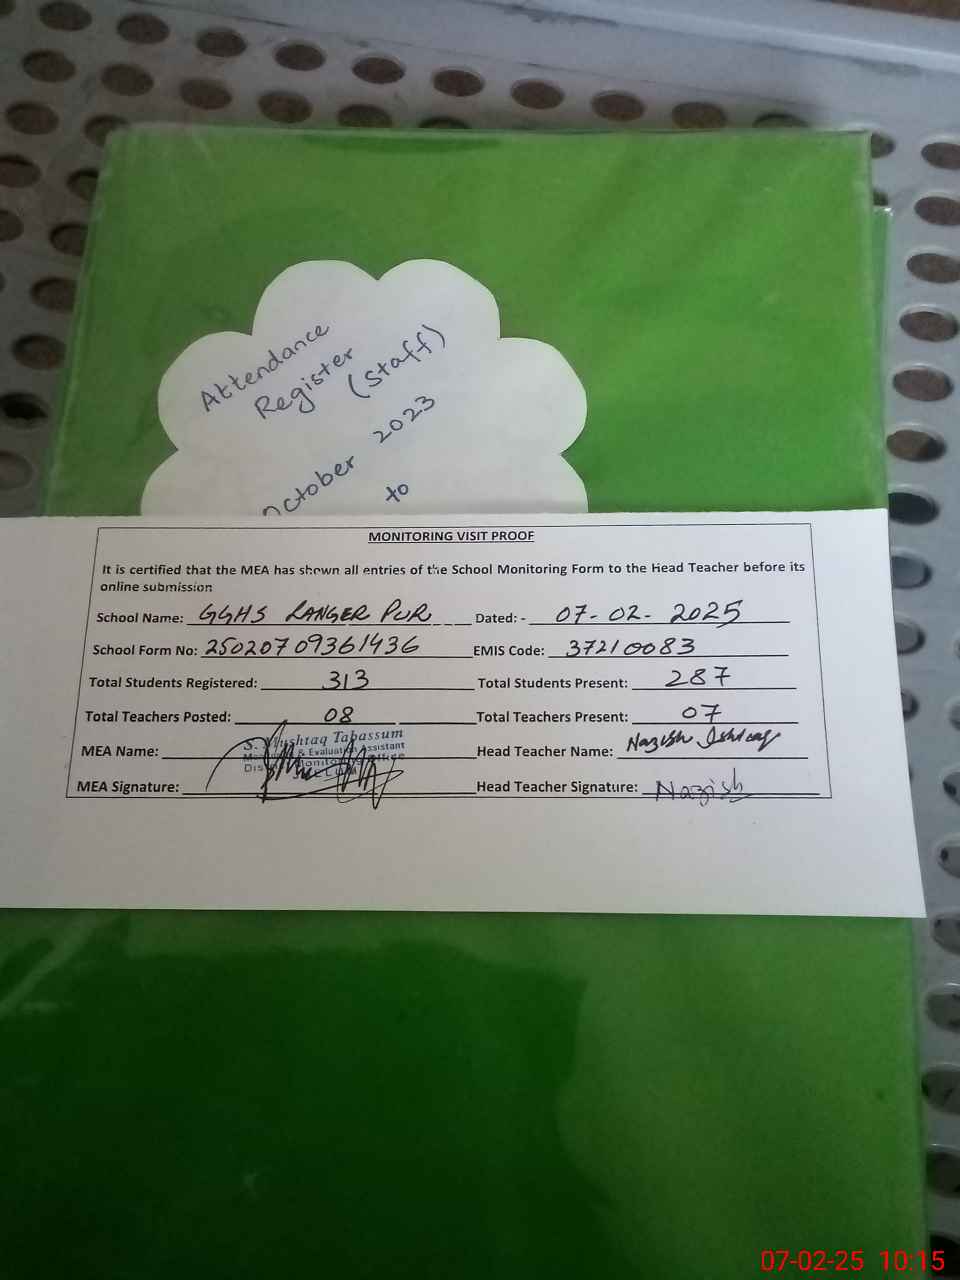 Attendance
Register
(Staff)
October 2023
to
MONITORING VISIT PROOF
It is certified that the MEA has shown all entries of the School Monitoring Form to the Head Teacher before its
online submission
School Name: GGHS LANGER PUR Dated: - 07-02-2025
School Form No: 25020709361436 EMIS Code: 37210083
Total Students Registered: 313 Total Students Present: 287
Total Teachers Posted: 08 Total Teachers Present: 07
S. Mushtaq Tabassum
Monitoring & Evaluation Assistant
District Monitoring Office
MEA Name: Head Teacher Name: Nazish Ishtiaq
MEA Signature: Head Teacher Signature: Nazish
07-02-25 10:15